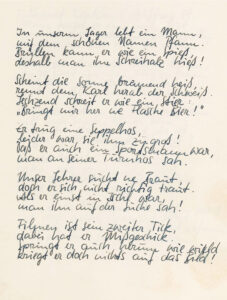 In unserm Lager lebt ein Mann,
mit dem schönen Namen Pfann.
Brüllen kann er wie ein Spieß,
deshalb man ihn Schreihals hieß!
Scheint die Sonne brennend heiß,
rennt dem Karl herab der Schweiß.
Lechzend schreit er wie ein Stier:
"Bringt mir her ne Flasche Bier!"
Er trug eine Seppelhos,
leider war sie ihm zu groß!
Daß er auch ein Sportsmann war,
man an seiner Turnhos sah.
Unser Lehrer sucht ne Braut,
doch er sich nicht richtig traut.
Als er einst in
man ihn auf der Suche sah!
Filmen ist sein zweiter Tick,
dabei hat er Mißgeschick.
Springt er auch herum wie wild
kriegt er doch nichts auf das Bild!